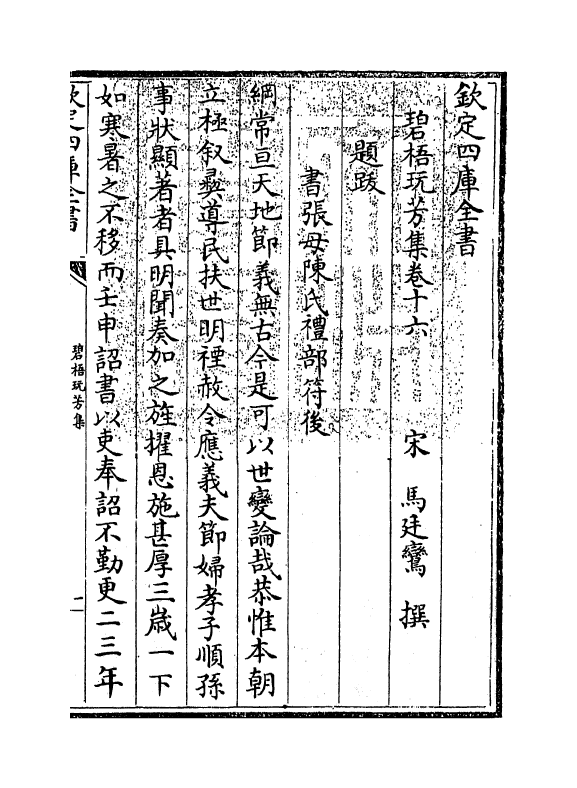 欽定四庫全書
碧梧玩芳集卷十六
宋 馬廷鸞 撰
題跋
書張母陳氏禮部符後
綱常亘天地節義無古今是可以世變論哉恭惟本朝
立極叙彛導民扶世明禋赦令應義夫節婦孝子順孫
事狀顯著者具明聞奏加之旌擢恩施甚厚三歳一下
如寒暑之不移而壬申詔書以吏奉詔不勤更二三年
欽定四庫全書
碧梧玩芳集